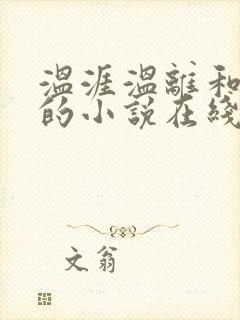 温涯温離和
的小說在綫
文翁